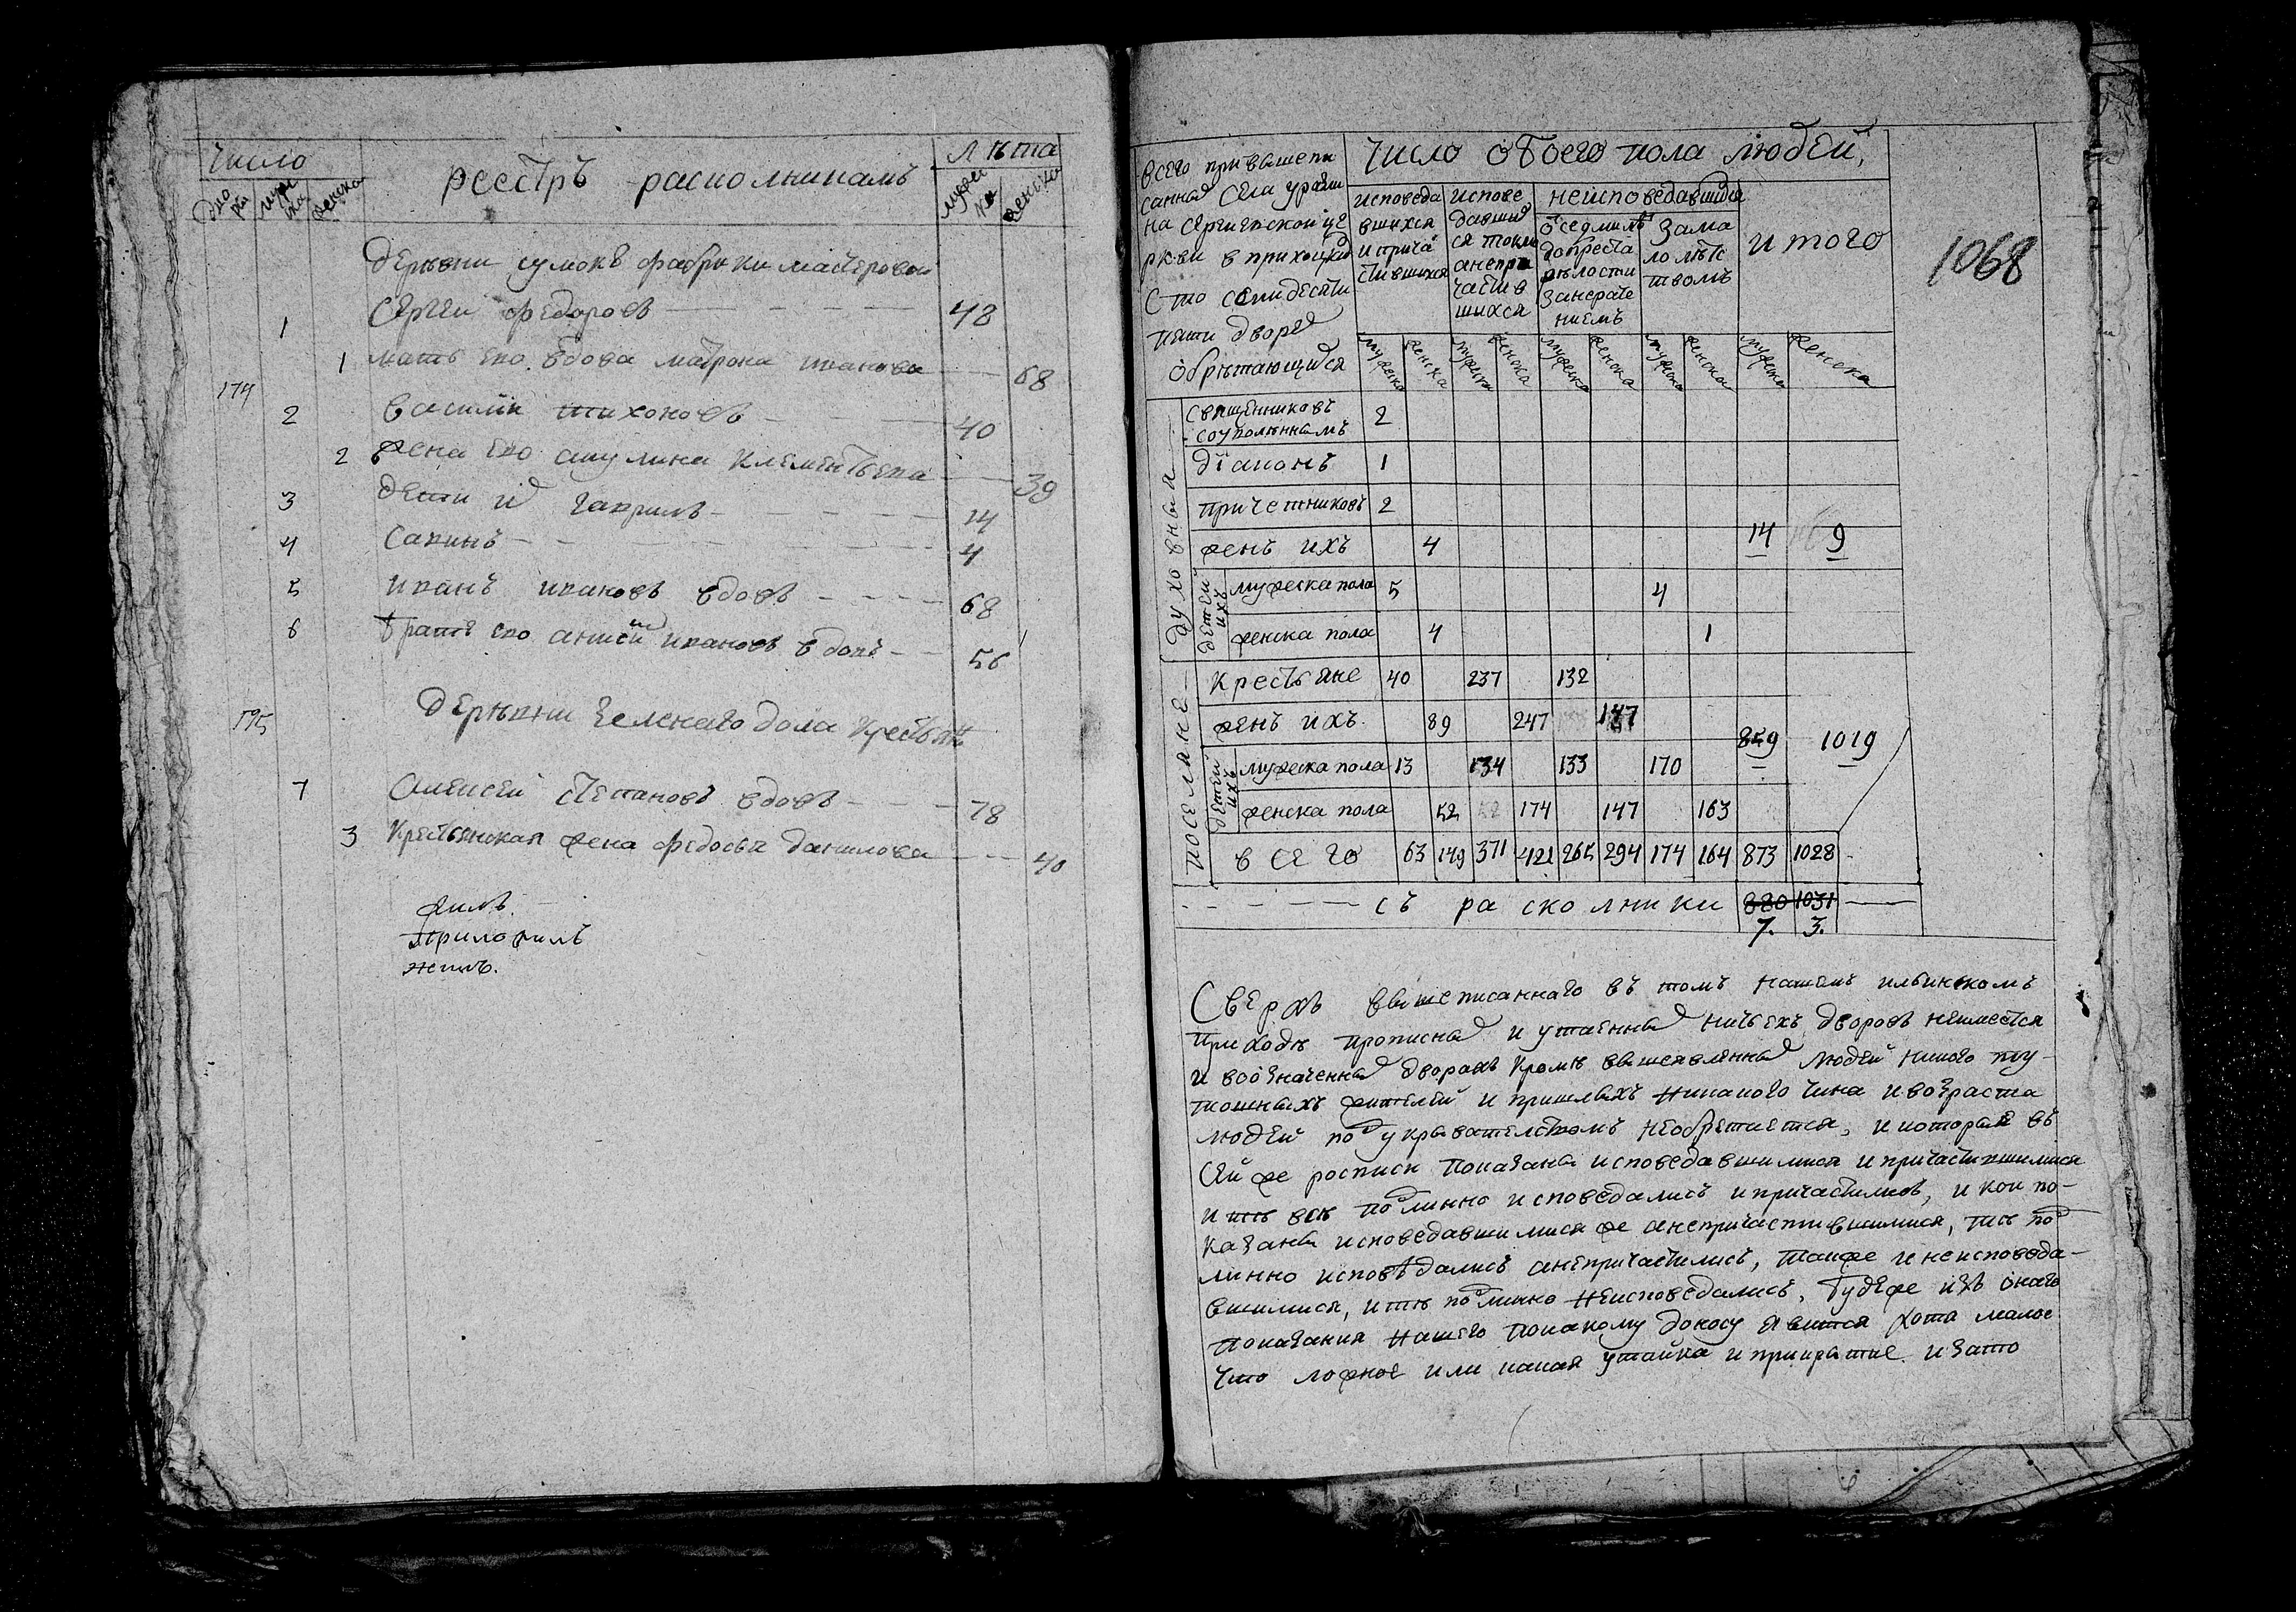 Число
Лѣта
реестръ раскольникамъ
дво ры
муж ска
женска
мужес ка
женска
деревни сумокъ фабрики мастеровои
1 Сергеи федоровъ 48
1 мать ево вдова матрона иванова 68
174
2 василии тихоновъ 40
2 жена ево акулина клементьева 39
3 дети их гаврилъ 14
4 савинъ 4
5 иванъ ивановъ вдовъ 68
6 братъ ево алѯѣи ивановъ вдовъ 56
175 деревни зеленаго дола крестьянъ
7 Алексеи степановъ вдовъ 78
3 крестьянская жена федосья данилова 40
жилъ.
приложилъ
жилъ.
1068
всего при вышепи
санной села урѣни
на сергиевской це
ркви в приходѣ
сто семидесяти
пяти дворех
обрѣтающихся
число обоего пола людей,
исповеда
вшихся
и прича
стившихся
испове
давших
ся токмо
а непри
частив
шихся
неисповедавшихся
о седми лѣтъ
до преста
рѣлости
за нерате
ниемъ
за ма
лолѣтс
твомъ
итого
мужеска женска мужеска женска мужеска женска мужеска женска мужеска женска
духовныя
священниковъ
2
діаконъ 1
причетниковъ 2
женъ ихъ 4 14 9
детей ихъ
мужеска пола 5 4
женска пола 4 1
поселяне
крестьяне 40 237 132
женъ ихъ 89 247 147
859 1019
детей ихъ
мужеска пола 13 134 133 170
женска пола 52 174 147 163
всего 63 149 371 421 265 294 174 164 873 1028
съ расколники 880 1031
7. 3.
Сверхъ вышеписаннаго въ томъ нашемъ ильинскомъ
приходѣ прописных и утаенных ничьехъ дворовъ неимеется
и всозначенных дворахъ кромѣ вышеявленных людей никого ту-
тошныхъ жителей и пришлыхъ никакого чина и возраста
людей под укрывателствомъ необретается, и которыя въ
сей же росписи показаны исповедавшимися и причастившимися
и тѣ всѣ подлинно исповедались и причастились, и кои по-
казаны исповедавшимися же а непричастившимися, тѣ под
линно исповѣдались а непричастились, также и неисповеда-
вшимися, и тѣ подлинно неисповедались, Будеже изъ онаго
показания нашего по какому доносу явится хотя малое
что ложное или какая утайка и прикрытие и за то